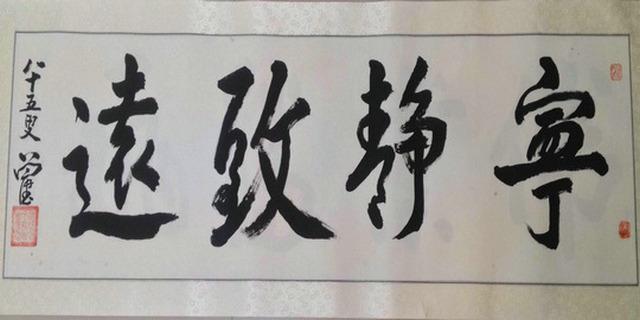 寧靜致遠
八十五叟